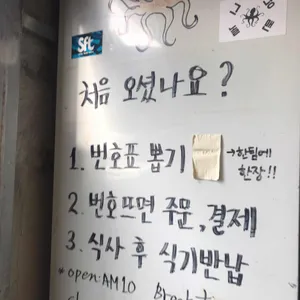 Sft
처음 오셨나요?
1. 번호표 뽑기
→한팀에
한장!!
2. 번호뜨면 주문, 결제
3. 식사 후 식기반납
*open:AM10